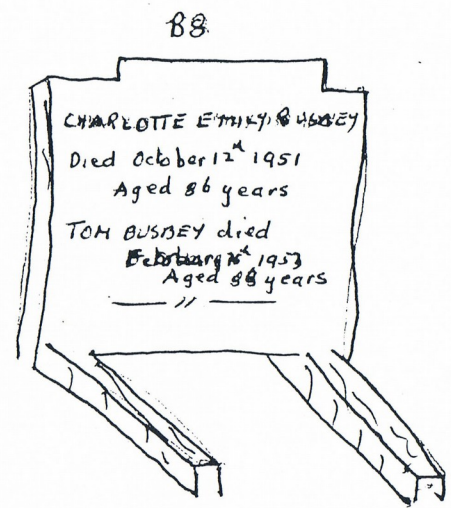 B8
CHARLOTTE EMILY BUSBEY
Died October 12th 1951
Aged 86 years
TOM BUSBEY died
February 1953
Aged years